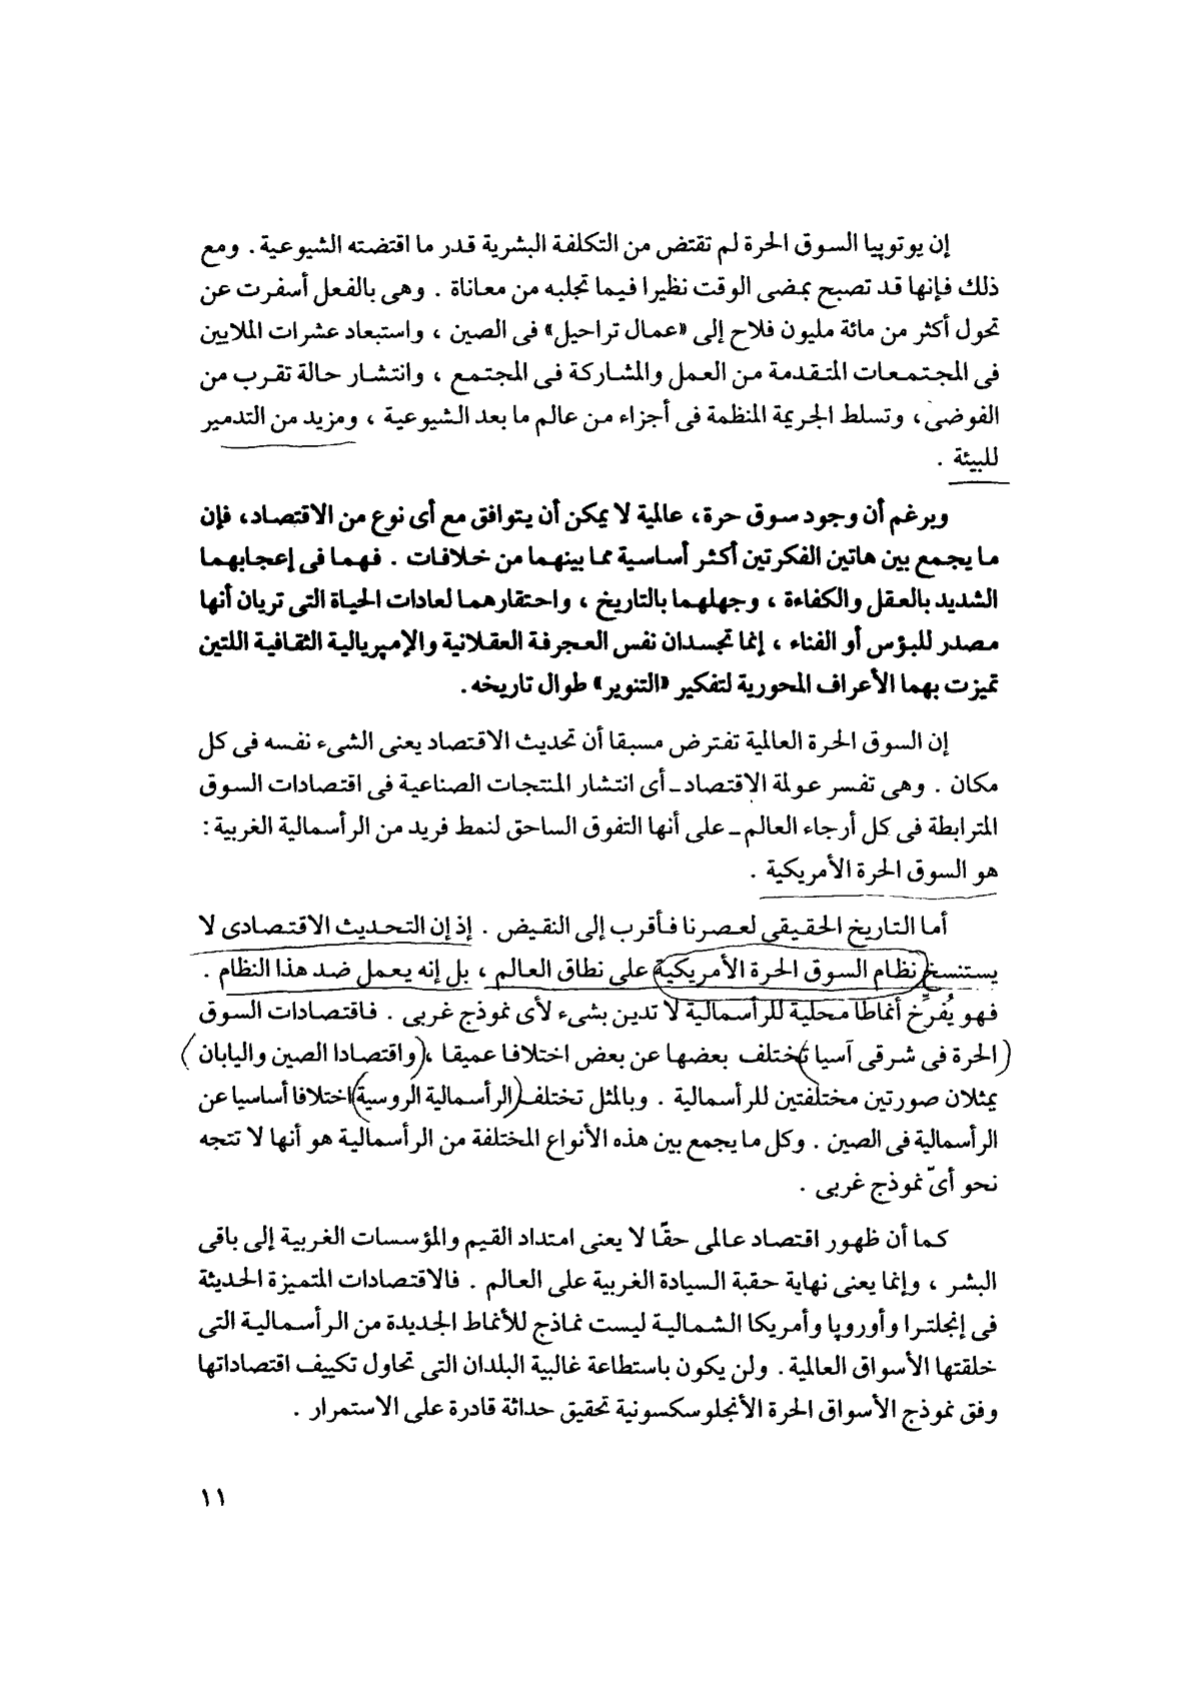 إن يوتوپيا السوق الحرة لم تقتض من التكلفة البشرية قدر ما اقتضته الشيوعية . ومع
ذلك فإنها قد تصبح بمضى الوقت نظيرا فيما تجلبه من معاناة . وهى بالفعل أسفرت عن
تحول أكثر من مائة مليون فلاح إلى «عمال تراحيل» فى الصين ، واستبعاد عشرات الملايين
فى المجتمعات المتقدمة من العمل والمشاركة فى المجتمع ، وانتشار حالة تقرب من
الفوضى، وتسلط الجريمة المنظمة فى أجزاء من عالم ما بعد الشيوعية ، ومزيد من التدمير
للبيئة .
وبرغم أن وجود سوق حرة، عالمية لا يمكن أن يتوافق مع أى نوع من الاقتصاد، فإن
ما يجمع بين هاتين الفكرتين أكثر أساسية مما بينهما من خلافات . فهما فى إعجابهما
الشديد بالعقل والكفاءة ، وجهلهما بالتاريخ ، واحتقارهما لعادات الحياة التى تريان أنها
مصدر للبؤس أو الفناء ، إنما تجسدان نفس العجرفة العقلانية والإمپريالية الثقافية اللتين
تميزت بهما الأعراف المحورية لتفكير «التنوير» طوال تاريخه.
إن السوق الحرة العالمية تفترض مسبقا أن تحديث الاقتصاد يعنى الشىء نفسه فى كل
مكان . وهى تفسر عولمة الاقتصاد ـ أى انتشار المنتجات الصناعية فى اقتصادات السوق
المترابطة فى كل أرجاء العالم ـ على أنها التفوق الساحق لنمط فريد من الرأسمالية الغربية :
هو السوق الحرة الأمريكية .
أما التاريخ الحقيقي لعصرنا فأقرب إلى النقيض . إذ إن التحديث الاقتصادى لا
يستنسخ نظام السوق الحرة الأمريكية على نطاق العالم ، بل إنه يعمل ضد هذا النظام .
فهو يُفرِّخ أنماطا محلية للرأسمالية لا تدين بشىء لأى نموذج غربى . فاقتصادات السوق
الحرة فى شرقى آسيا تختلف بعضها عن بعض اختلافا عميقا ، واقتصادا الصين واليابان
يمثلان صورتين مختلفتين للرأسمالية . وبالمثل تختلف الرأسمالية الروسية اختلافا أساسيا عن
الرأسمالية فى الصين . وكل ما يجمع بين هذه الأنواع المختلفة من الرأسمالية هو أنها لا تتجه
نحو أىّ نموذج غربى .
كما أن ظهور اقتصاد عالمى حقًا لا يعنى امتداد القيم والمؤسسات الغربية إلى باقى
البشر ، وإنما يعنى نهاية حقبة السيادة الغربية على العالم . فالاقتصادات المتميزة الحديثة
فى إنجلترا وأوروپا وأمريكا الشمالية ليست نماذج للأنماط الجديدة من الرأسمالية التى
خلقتها الأسواق العالمية . ولن يكون باستطاعة غالبية البلدان التى تحاول تكييف اقتصاداتها
وفق نموذج الأسواق الحرة الأنجلوسكسونية تحقيق حداثة قادرة على الاستمرار .
١١